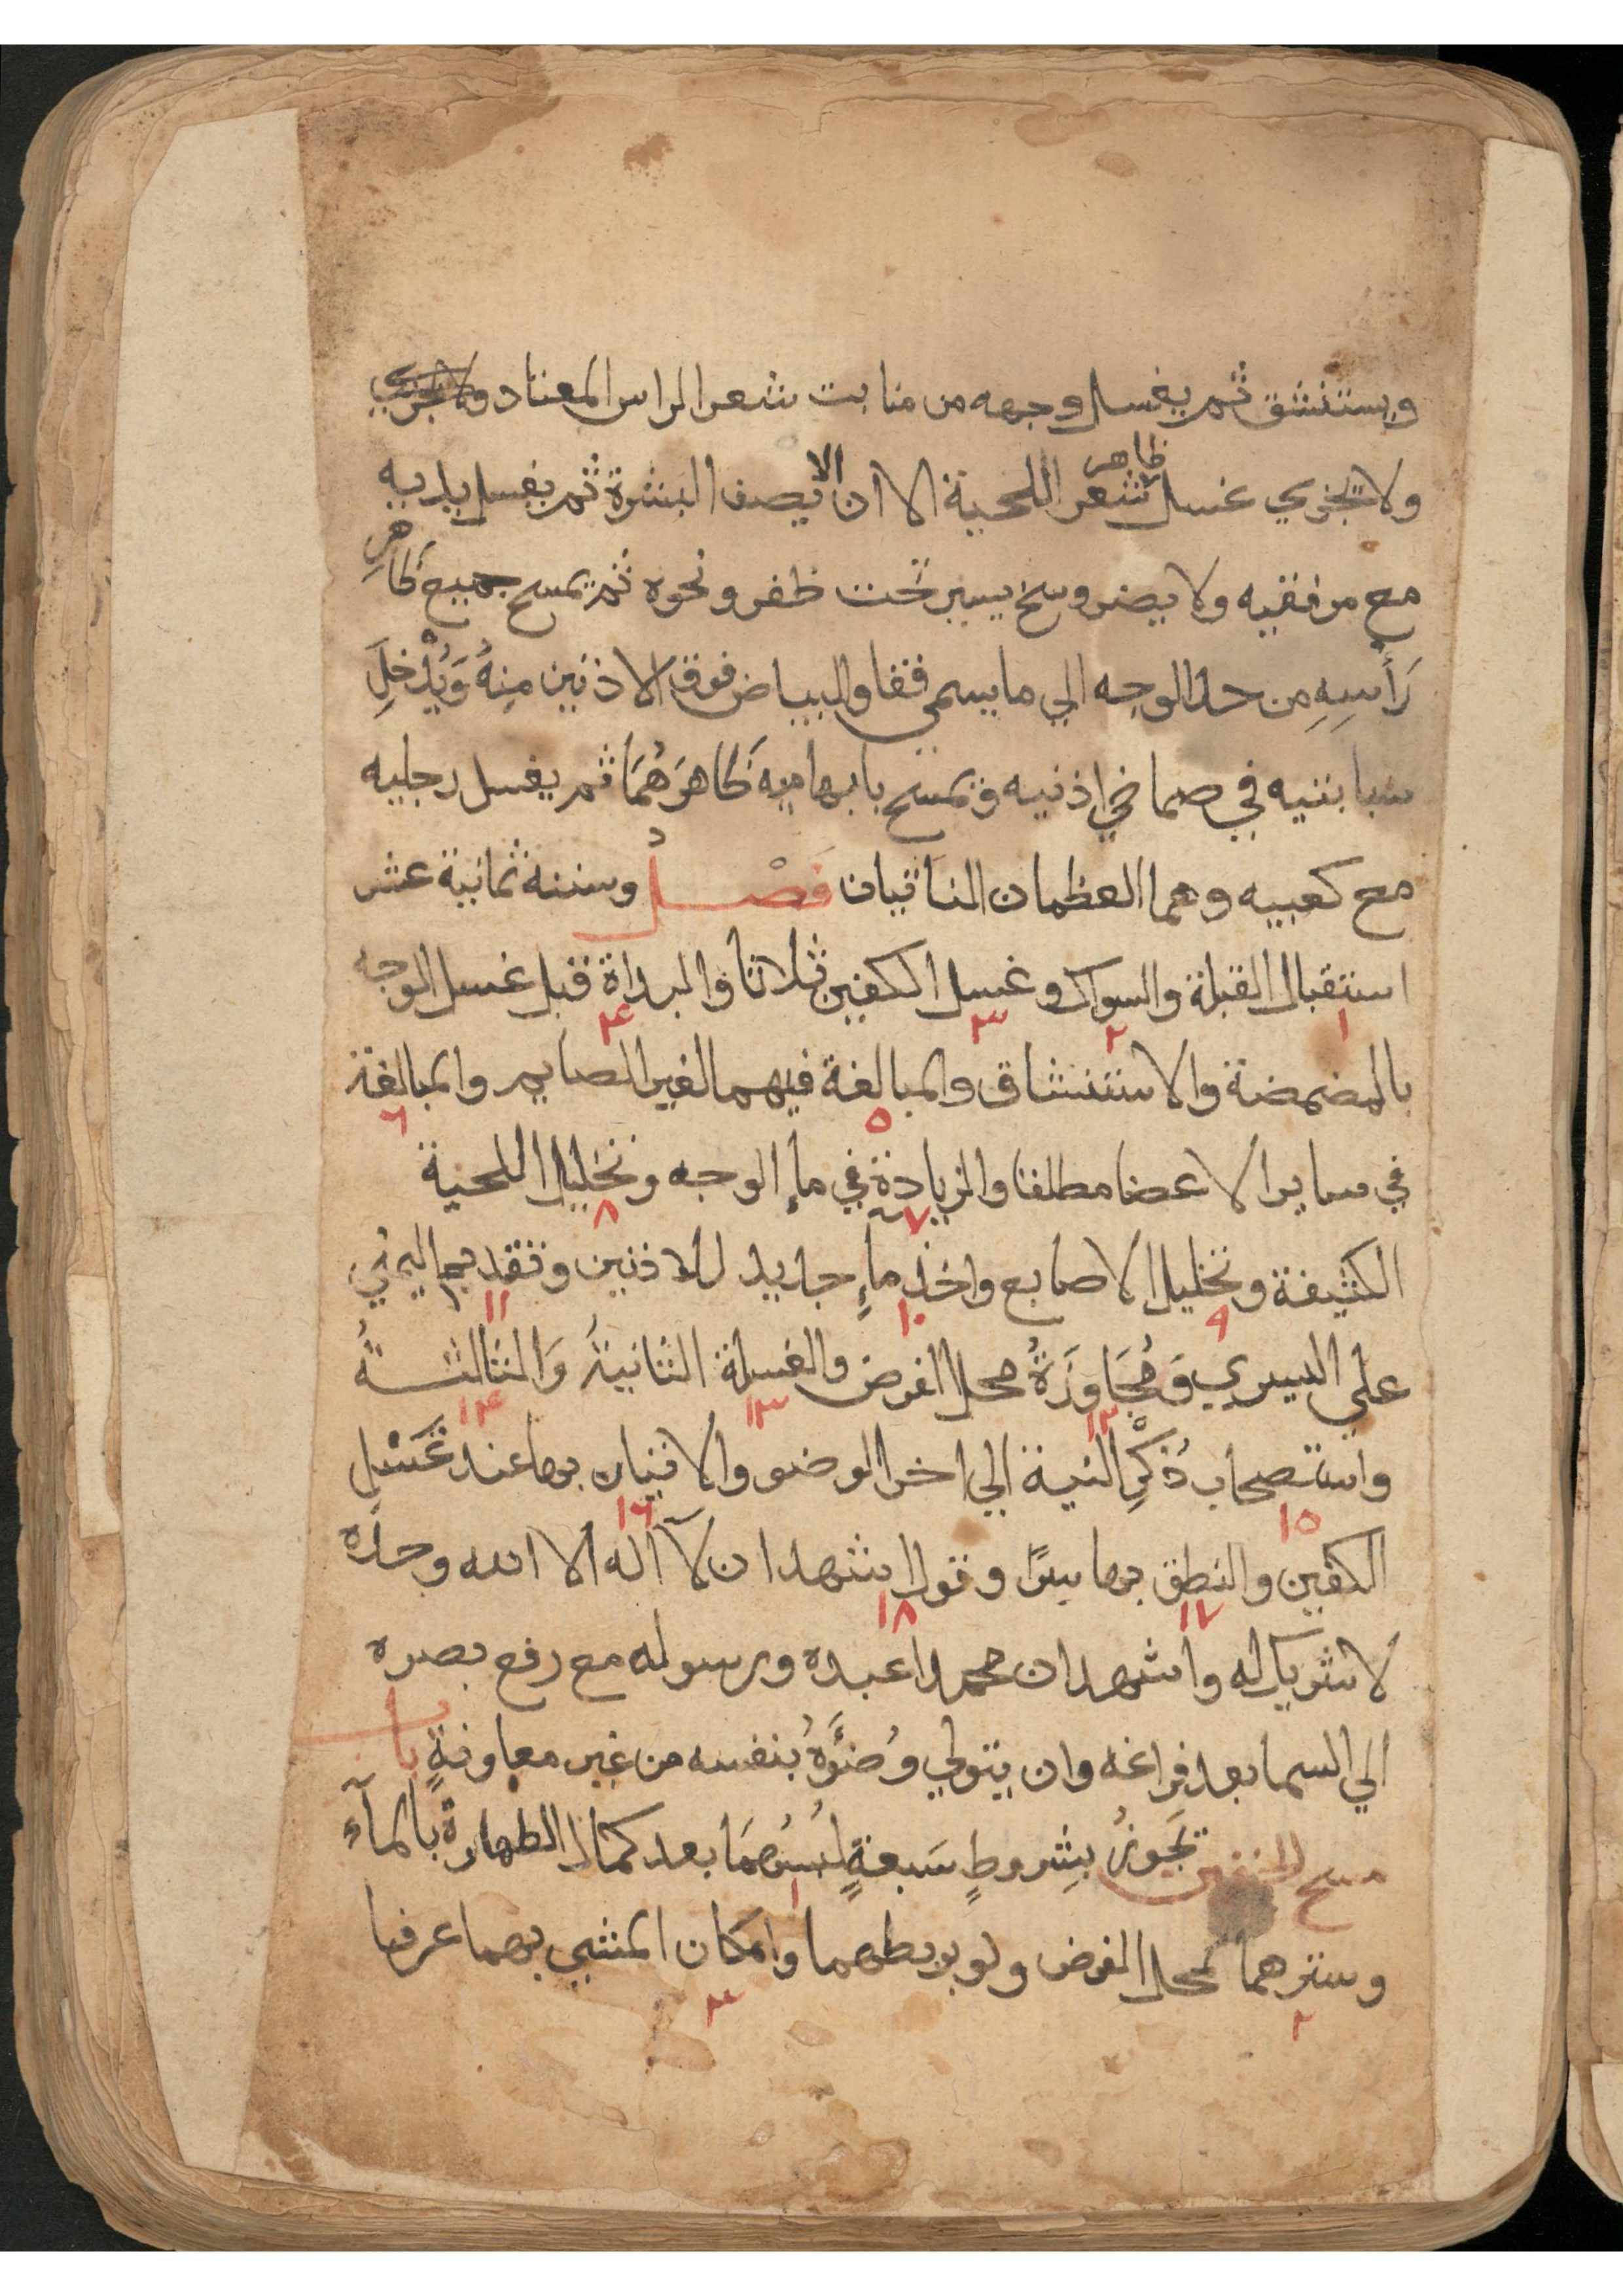 ويستنشق ثم يغسل وجهه من منابت شعر الراس المعتاد ولا يجزي
ولا يجزي غسل ظاهر شعر اللحية الا ان لا يصف البشرة ثم يغسل يديه
مع مرفقيه ولا يضر وسخ يسير تحت ظفر ونحوه ثم يمسح جميع ظاهر
رَأْسِهِ من حد الوجه الي ما يسمي قفا والبياض فوق الاذنين مِنهُ وَيُدْخِلُ
سبابتيه في صماخي اذنيه ويمسح بابهاميه ظَاهرَهُمَا ثم يغسل رجليه
مع كعبيه وهما العظمان الناتيان فَصْلٌ وسننه ثمانية عشر
استقبال القبلة والسواك وغسل الكفين ثلاثا والبداة قبل غسل الوجه
١ ٢ ٣ ٤
بالمضمضة والاستنشاق والمبالغة فيهما لغير الصايم والمبالغة
٥ ٦
في ساير الاعضا مطلقا والزيادة في ماءِ الوجه وتخليل اللحية
٧ ٨
الكثيفة وتخليل الاصابع واخذ ماءٍ جديد للاذنين وتقديم اليمني
٩ ١٠ ١١
علي اليسري وَمُجَاوَزَةُ محل الفرض والغسلة الثانيةُ وَالثالثــةُ
١٢ ١٣ ١٤
واستصحاب ذكْرِ النية الي اخر الوضو والاتيان بها عند غَسْلِ
١٥ ١٦
الكفين والنطق بها سرًا وقول اشهد ان لآ اله الا الله وحدَه
١٧ ١٨
لا شريك له واشهد ان محمدا عبده ورسوله مع رفع بصره
الي السما بعد فراغه وان يتولي وُضُوَّهُ بنفسه من غير معاونةٍ باب
مسح الخفين يَجُوزُ بِشِروطٍ سَبعةٍ لُبسُهمَا بعد كمال الطهارةُ بالمآء
١
وسترهما لمحل الفرض ولو بربطهما وامكان المشي بهما عرفا
٢ ٣